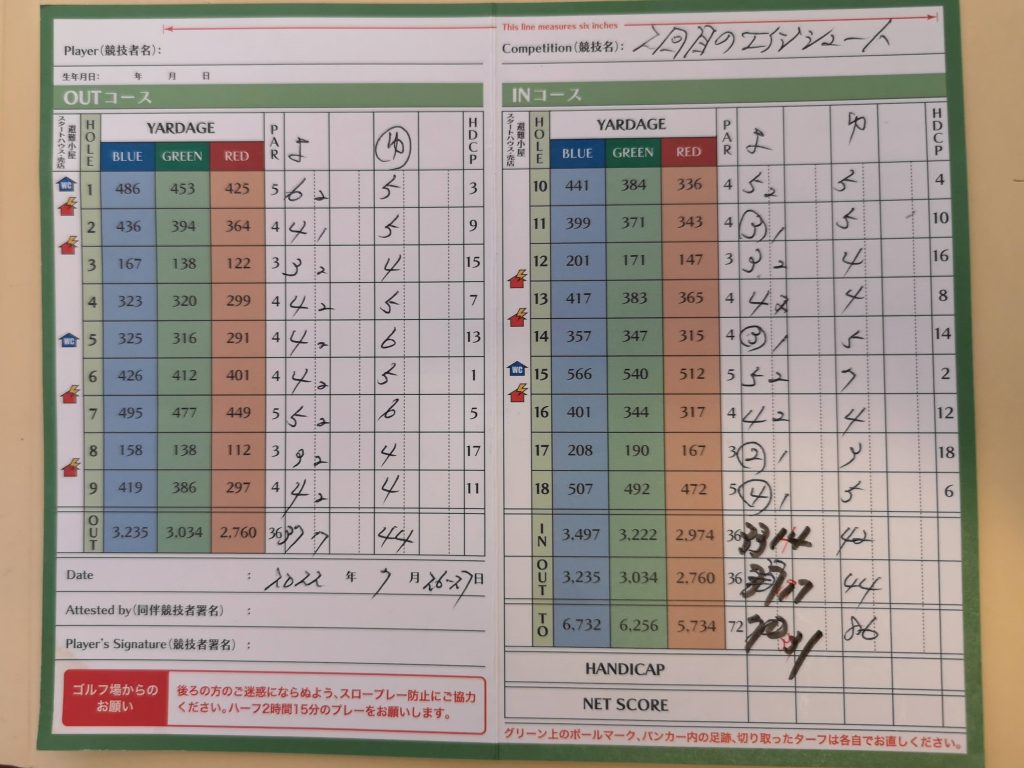 This line measures six inches
Player(競技者名):
Competition(競技名): 2回目のエイジシュート
生年月日: 年 月 日
OUTコース
INコース
スタートハウス・売店 避難小屋 HOLE YARDAGE PAR ま ゆ HDCP
BLUE GREEN RED
WC 1 486 453 425 5 6 2 5 3
2 436 394 364 4 4 1 5 9
3 167 138 122 3 3 2 4 15
4 323 320 299 4 4 2 5 7
WC 5 325 316 291 4 4 2 6 13
6 426 412 401 4 4 2 5 1
7 495 477 449 5 5 2 6 5
8 158 138 112 3 3 2 4 17
9 419 386 297 4 4 2 4 11
OUT 3,235 3,034 2,760 36 37 17 44
Date : 2022 年 7 月 26-27 日
Attested by(同伴競技者署名) :
Player's Signature(競技者署名) :
ゴルフ場からの
お願い
後ろの方のご迷惑にならぬよう、スロープレー防止にご協力
ください。ハーフ2時間15分のプレーをお願いします。
スタートハウス・売店 避難小屋 HOLE YARDAGE PAR ま ゆ HDCP
BLUE GREEN RED
10 441 384 336 4 5 2 5 4
11 399 371 343 4 3 1 5 10
12 201 171 147 3 3 2 4 16
13 417 383 365 4 4 2 4 8
14 357 347 315 4 3 1 5 14
WC 15 566 540 512 5 5 2 7 2
16 401 344 317 4 4 2 4 12
17 208 190 167 3 2 1 3 18
18 507 492 472 5 4 1 5 6
IN 3,497 3,222 2,974 36 33 14 42
OUT 3,235 3,034 2,760 36 37 17 44
TO 6,732 6,256 5,734 72 70 31 86
HANDICAP
NET SCORE
グリーン上のボールマーク、バンカー内の足跡、切り取ったターフは各自でお直しください。